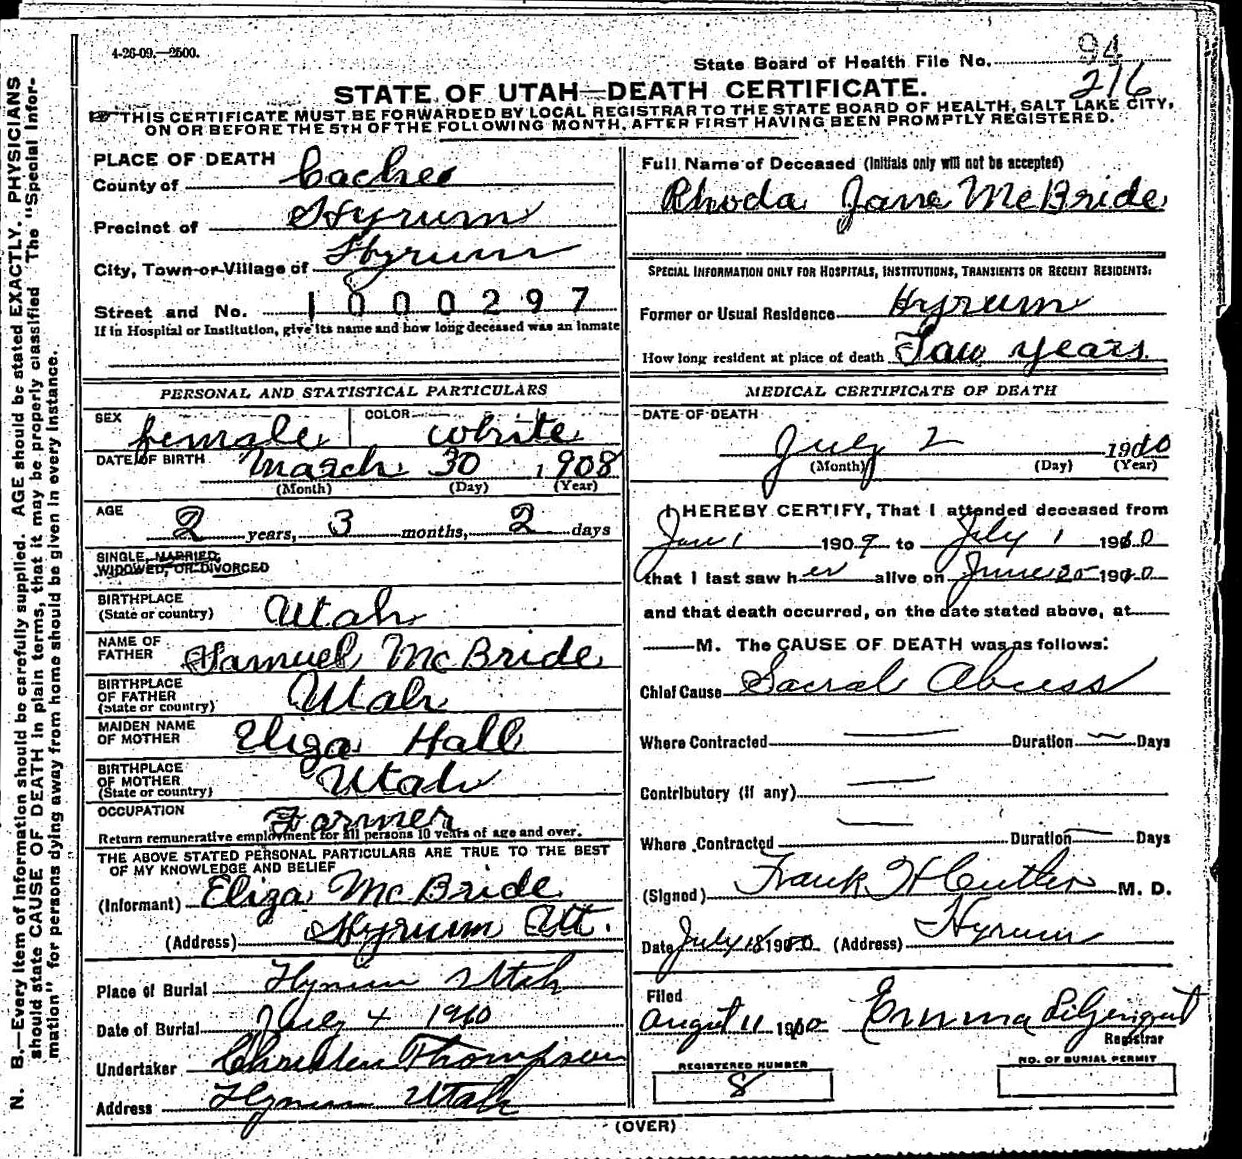 4-26-09.—2500.
State Board of Health File No. 94
216
STATE OF UTAH—DEATH CERTIFICATE.
THIS CERTIFICATE MUST BE FORWARDED BY LOCAL REGISTRAR TO THE STATE BOARD OF HEALTH, SALT LAKE CITY,
ON OR BEFORE THE 5TH OF THE FOLLOWING MONTH, AFTER FIRST HAVING BEEN PROMPTLY REGISTERED.
N. B.—Every item of information should be carefully supplied. AGE should be stated EXACTLY. PHYSICIANS
should state CAUSE OF DEATH in plain terms, that it may be properly classified. The "Special Infor-
mation" for persons dying away from home should be given in every instance.
PLACE OF DEATH
County of Cache
Precinct of Hyrum
City, Town or Village of Hyrum
Street and No. 1000297
If in Hospital or Institution, give its name and how long deceased was an inmate
PERSONAL AND STATISTICAL PARTICULARS
SEX female COLOR white
DATE OF BIRTH March 30 1908
(Month) (Day) (Year)
AGE 2 years, 3 months, 2 days
SINGLE, MARRIED,
WIDOWED, OR DIVORCED
BIRTHPLACE
(State or country) Utah
NAME OF
FATHER Samuel McBride
BIRTHPLACE
OF FATHER
(State or country) Utah
MAIDEN NAME
OF MOTHER Eliza Hall
BIRTHPLACE
OF MOTHER
(State or country) Utah
OCCUPATION Farmer
Return remunerative employment for all persons 10 years of age and over.
THE ABOVE STATED PERSONAL PARTICULARS ARE TRUE TO THE BEST
OF MY KNOWLEDGE AND BELIEF
(Informant) Eliza McBride
(Address) Hyrum Ut.
Place of Burial Hyrum Utah
Date of Burial July 4 1910
Undertaker Thompson
Address Hyrum Utah
Full Name of Deceased (Initials only will not be accepted)
Rhoda Jane McBride
SPECIAL INFORMATION ONLY FOR HOSPITALS, INSTITUTIONS, TRANSIENTS OR RECENT RESIDENTS:
Former or Usual Residence Hyrum
How long resident at place of death years
MEDICAL CERTIFICATE OF DEATH
DATE OF DEATH
July 2 1910
(Month) (Day) (Year)
I HEREBY CERTIFY, That I attended deceased from
Jan 1 1909 to July 1 1910
that I last saw her alive on June 1910
and that death occurred, on the date stated above, at
M. The CAUSE OF DEATH was as follows:
Chief Cause Sacral Abcess
Where Contracted Duration Days
Contributory (if any)
Where Contracted Duration Days
(Signed) Frank H Cutler M. D.
Date July 18 1910 (Address) Hyrum
Filed
August 11 1910 Emma
Registrar
REGISTERED NUMBER
8
NO. OF BURIAL PERMIT
(OVER)